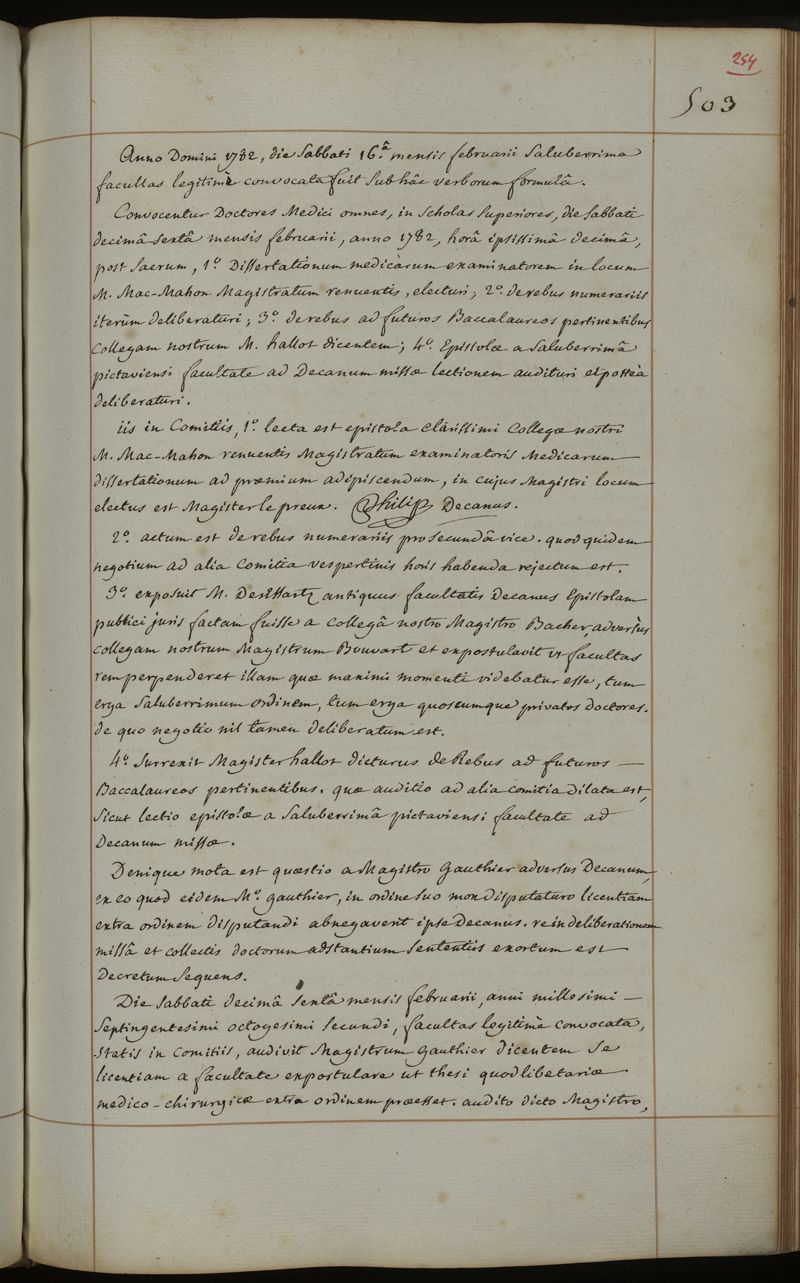 254
503
Anno Domini 1782, die Sabbati 16.â mensis februarii Saluberrima
facultas legitimè convocata fuit Sub hâc verborum formulâ.
Convocentur Doctores Medici omnes, in Scholas Superiores, die Sabbati
decimâ Sextâ mensis februarii, anno 1782, horâ ipsissimâ decimâ,
post Sacrum, 1.º Dissertationum medicarum examinatorem in locum
M. Mac-Mahon Magistratum renuentis, electuri; 2º. de rebus numerariis
iterùm deliberaturi; 3º. de rebus ad futuros Baccalaureos pertinentibus
Collegam nostrum M. hallot dicentem; 4º. Epistolæ a Saluberrimâ
pictaviensi facultate ad Decanum missæ lectionem audituri et posteà
deliberaturi.
iis in Comitiis, 1.º lecta est epistola clarissimi Collegæ nostri
M. Mac-Mahon renuentis Magistratum examinatoris Medicarum
dissertationum ad præmium adipiscendum, in cujus Magistri locum
electus est Magister le preux. Philip Decanus.
2º. actum est de rebus numerariis pro Secundâ vice. quod quidem
negotium ad alia Comitia vespertinis horis habenda rejectum est.
3º. exposuit M. DesEssartz antiquus facultatis Decanus Epistolam
publici juris factam fuisse a collegâ nostro Magistro Bacher, adversùs
Collegam nostrum Magistrum Bouvart et expostulavit ut facultas
rem perpenderet illam quæ maximi momenti videbatur esse, tum
erga Saluberrimum ordinem, tum erga quoscumque privatos doctores.
de quo negotio nil tamen deliberatum est.
4º. Surrexit Magister hallot dicturus de Rebus ad futuros
Baccalaureos pertinentibus. quæ auditio ad alia comitia dilata est,
Sicut lectio epistolæ a Saluberrimâ pictaviensi facultate ad
Decanum missæ.
Denique mota est quæstio a Magistro Gauthier adversus Decanum,
ex eo quod eidem Mº. gauthier, in ordine suo mox disputaturo licentiam
extra ordinem disputandi abnegaverit ipse Decanus. re in deliberationem
missâ et collectis doctorum adstantium Sententiis exortum est
Decretum Sequens.
Die Sabbati decimâ Sextâ mensis februarii, anni millesimi
Septingentesimi octogesimi secundi, facultas legitimè convocata,
Statis in comitiis, audivit Magistrum Gauthier dicentem Se
licentiam a facultate expostulare ut thesi quodlibetariæ
medico-chirurgicæ extra ordinem præesset. audito dicto Magistro,